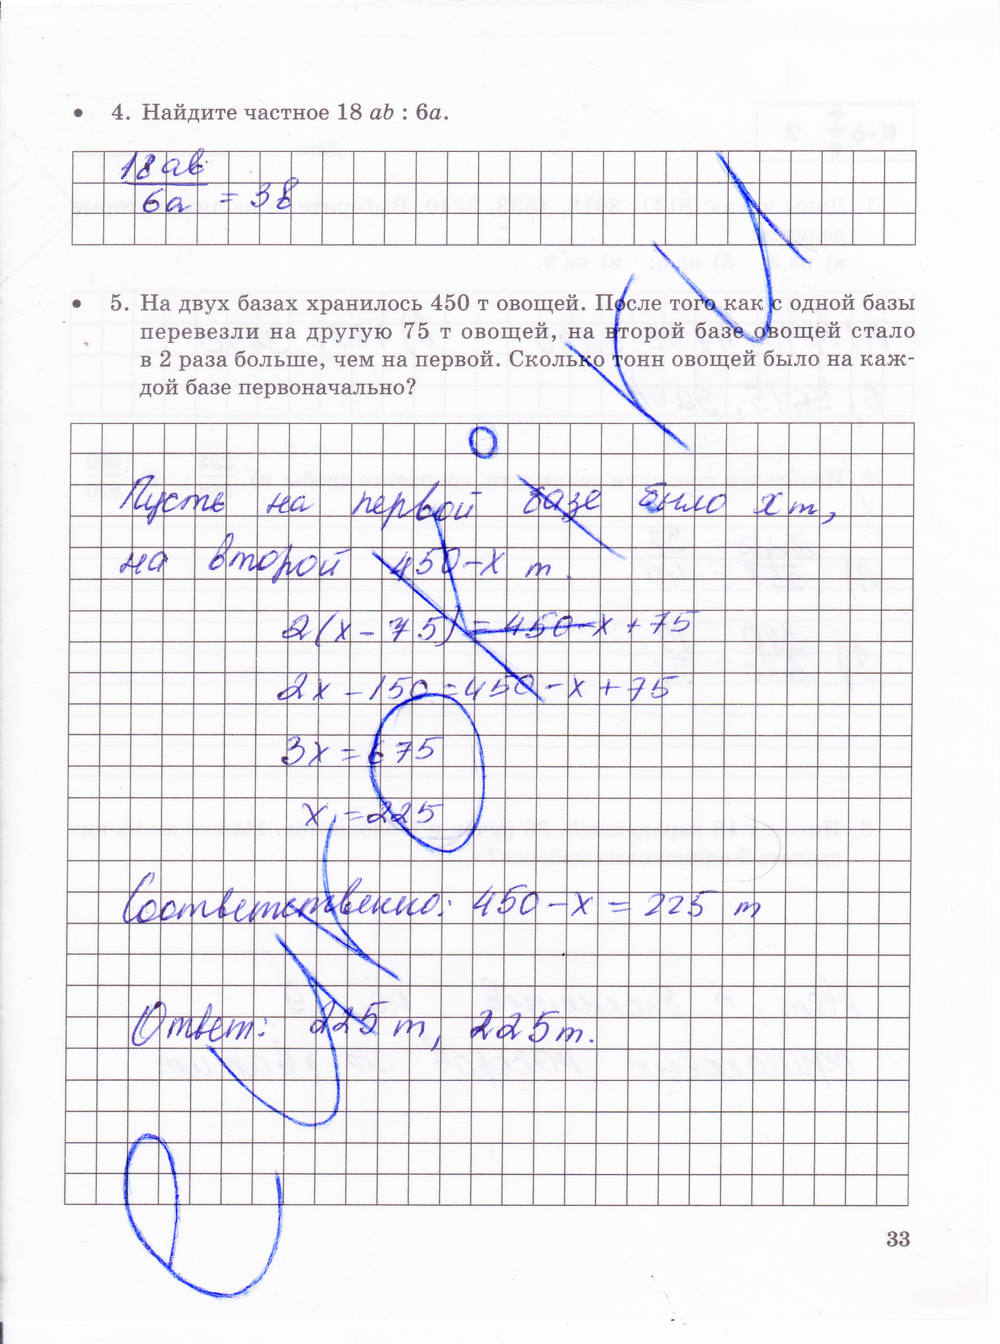 4. Найдите частное 18 ab : 6a.
18ab
6a = 3b
5. На двух базах хранилось 450 т овощей. После того как с одной базы
перевезли на другую 75 т овощей, на второй базе овощей стало
в 2 раза больше, чем на первой. Сколько тонн овощей было на каж-
дой базе первоначально?
Пусть на первой базе было x т,
на второй 450-x т.
2(x-75)=450-x+75
2x-150=450-x+75
3x=675
x=225
Соответственно: 450-x=225 т
Ответ: 225 т, 225 т.
33